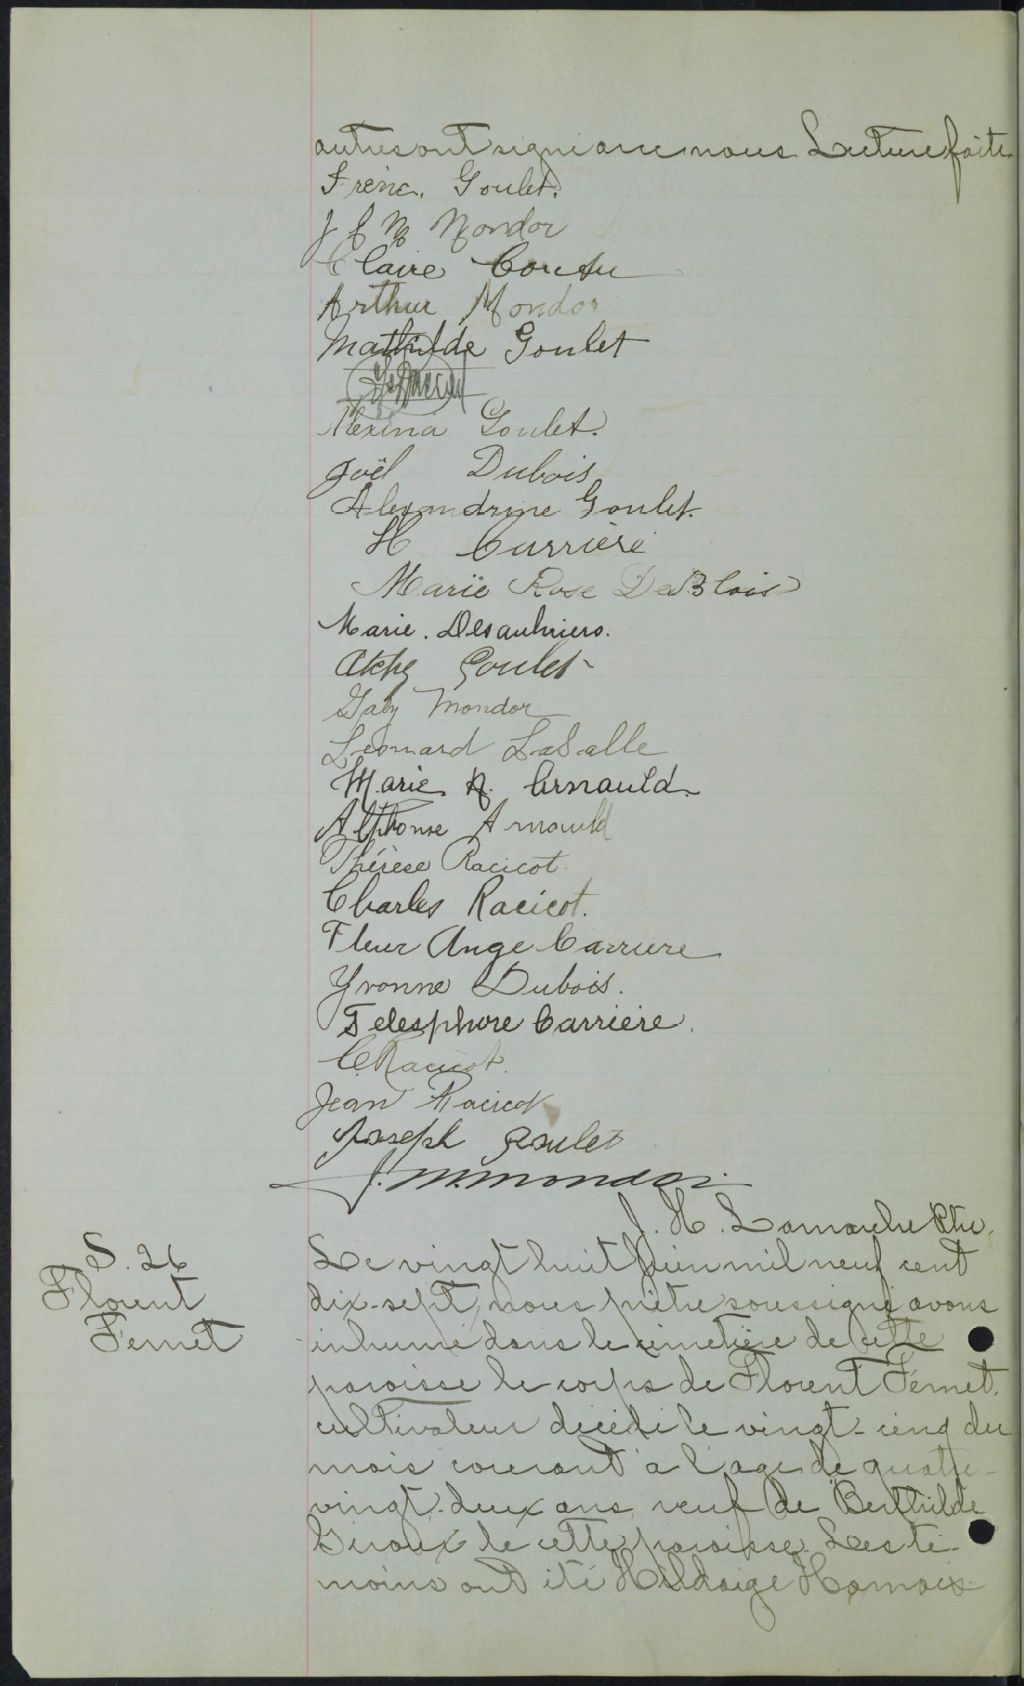 autres ont signé avec nous. Lecture faite
Goulet.
Mondor
Claire
Arthur Mondor
Mathilde Goulet
Alexina Goulet.
Joël Dubois
Alexandrine Goulet.
H Carrière
Marie Rose DeBlois
Marie. Desaulniers.
Goulet
Gaby Mondor
Léonard LaSalle
Marie A. Arnauld.
Alphonse Arnauld
Thérèse Racicot.
Charles Racicot.
Fleur Ange Carriere
Yvonne Dubois.
Telesphore Carrière.
C. Racicot.
Jean Racicot
Joseph Goulet
J. M. Mondor
J. H. Lamarche Ptre.
S. 26
Florent
Fernet
Le vingt huit Juin mil neuf cent
dix-sept, nous prêtre soussigné avons
inhumé dans le cimetière de cette
paroisse le corps de Florent Fernet,
cultivateur décédé le vingt-cinq du
mois courant à l'age de quatre-
vingt-deux ans veuf de Berthilde
Giroux de cette paroisse. Les té-
moins ont été Hildaige Hamois